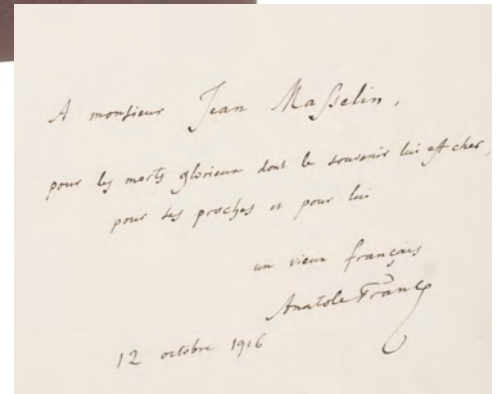 A monsieur Jean Masselin,
pour les morts glorieux dont le souvenir lui est cher,
pour ses proches et pour lui
un vieux français
Anatole France
12 octobre 1916